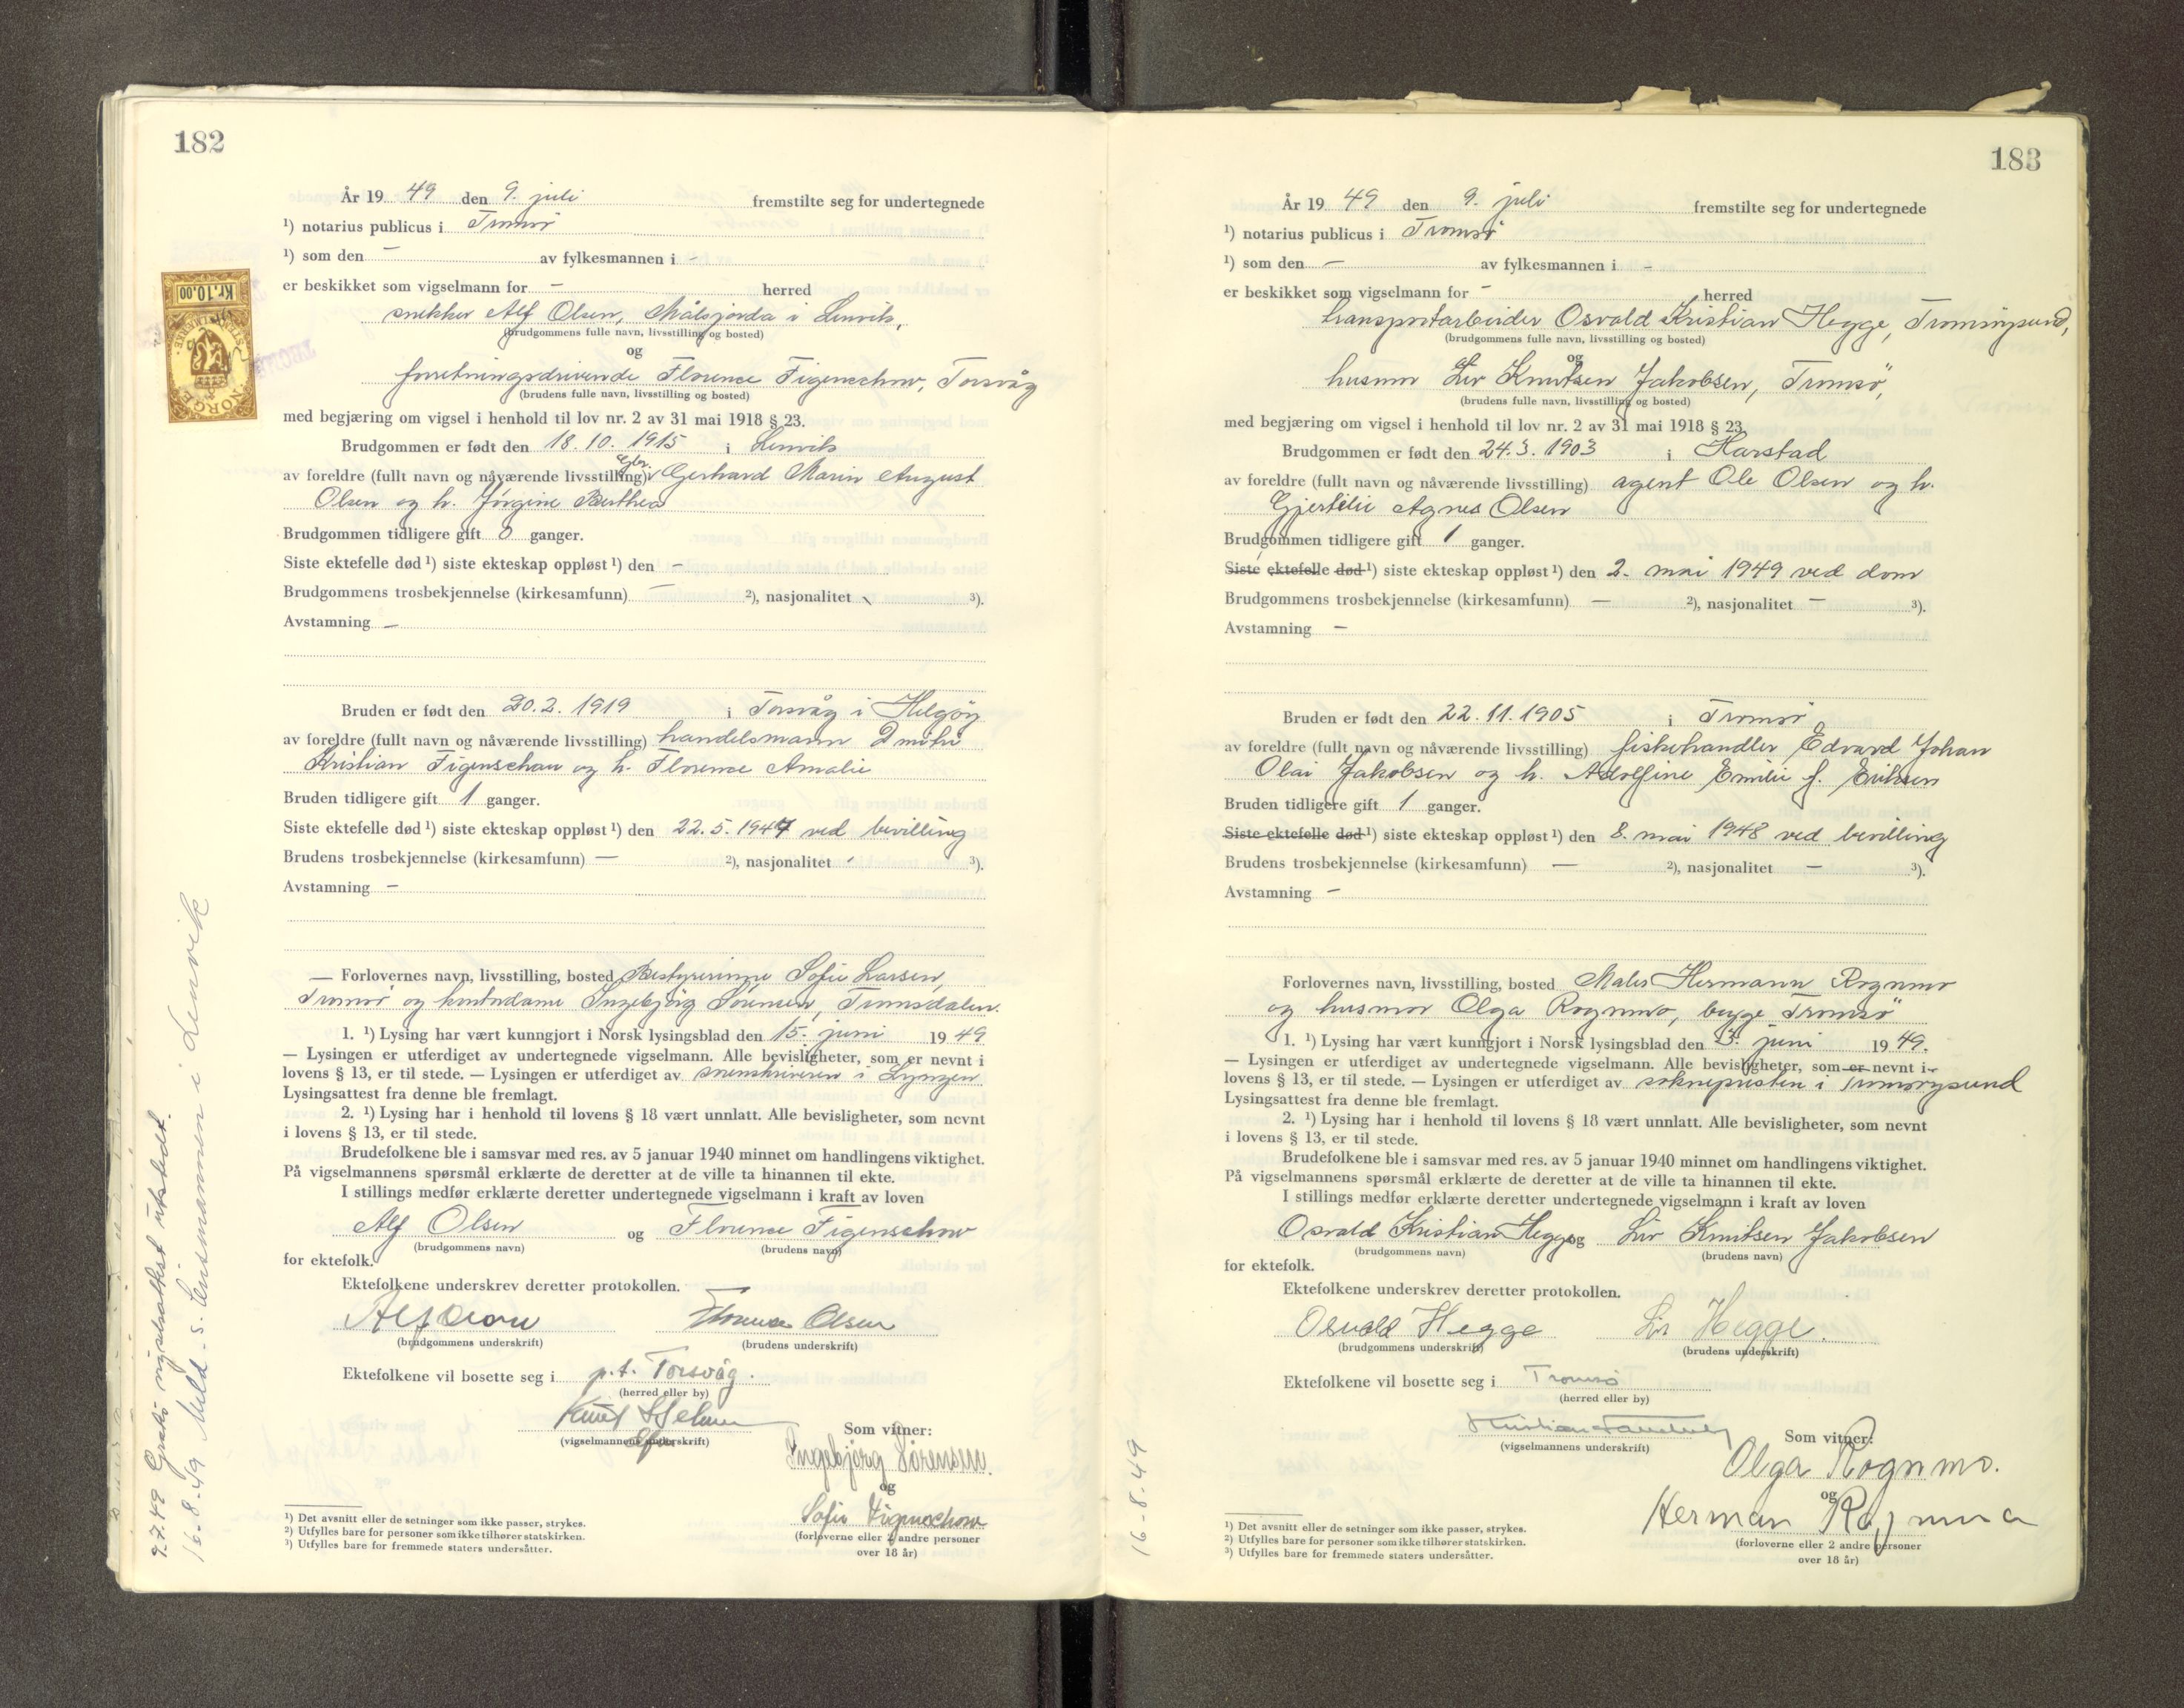 182
År 19 49 den 9. juli fremstilte seg for undertegnede
¹) notarius publicus i Tromsö
¹) som den – av fylkesmannen i –
er beskikket som vigselmann for – herred
snekker Alf Olsen, Målsjorda i Lenvik,
(brudgommens fulle navn, livsstilling og bosted)
og
forretningsdrivende Florence Figenschow, Torsvåg
(brudens fulle navn, livsstilling og bosted)
med begjæring om vigsel i henhold til lov nr. 2 av 31 mai 1918 § 23.
Brudgommen er født den 18.10.1915 i Lenvik
av foreldre (fullt navn og nåværende livsstilling) Gbr. Gerhard Marin August
Olsen og h. Jörgine Berthea
Brudgommen tidligere gift 0 ganger.
Siste ektefelle død ¹) siste ekteskap oppløst ¹) den –
Brudgommens trosbekjennelse (kirkesamfunn) – ²), nasjonalitet ³).
Avstamning –
Bruden er født den 20.2.1919 i Torsvåg i Helgöy
av foreldre (fullt navn og nåværende livsstilling) handelsmann Dmitri
Kristian Figenschau og h. Florence Amalie
Bruden tidligere gift 1 ganger.
Siste ektefelle død ¹) siste ekteskap oppløst ¹) den 22.5.1947 ved bevilling
Brudens trosbekjennelse (kirkesamfunn) – ²), nasjonalitet ³).
Avstamning –
— Forlovernes navn, livsstilling, bosted Bestyrerinne Sofie Larsen,
Tromsö og kontordame Ingebjörg Sörensen, Tromsdalen.
1. ¹) Lysing har vært kunngjort i Norsk lysingsblad den 15. juni 19 49
— Lysingen er utferdiget av undertegnede vigselmann. Alle bevisligheter, som er nevnt i
lovens § 13, er til stede. — Lysingen er utferdiget av sorenskriveren i Lyngen
Lysingsattest fra denne ble fremlagt.
2. ¹) Lysing har i henhold til lovens § 18 vært unnlatt. Alle bevisligheter, som nevnt
i lovens § 13, er til stede.
Brudefolkene ble i samsvar med res. av 5 januar 1940 minnet om handlingens viktighet.
På vigselmannens spørsmål erklærte de deretter at de ville ta hinannen til ekte.
I stillings medfør erklærte deretter undertegnede vigselmann i kraft av loven
Alf Olsen og Florence Figenschow
(brudgommens navn) (brudens navn)
for ektefolk.
Ektefolkene underskrev deretter protokollen.
Alf Olsen Florence Olsen
(brudgommens underskrift) (brudens underskrift)
Ektefolkene vil bosette seg i p.t. Torsvåg.
(herred eller by)
Knut
(vigselmannens underskrift)
Som vitner:
Ingebjørg Sørensen.
og
Sofie Figenschow
(forloverne eller 2 andre personer
over 18 år)
¹) Det avsnitt eller de setninger som ikke passer, strykes.
²) Utfylles bare for personer som ikke tilhører statskirken.
³) Utfylles bare for fremmede staters undersåtter.
9.7.49 Gratis vigselsattest utstedt.
16-8-49 Meld. s. lensmannen i Lenvik
Kr. 10,00
NORGE
183
År 19 49 den 9. juli fremstilte seg for undertegnede
¹) notarius publicus i Tromsö
¹) som den – av fylkesmannen i –
er beskikket som vigselmann for – herred
transportarbeider Osvald Kristian Hegge, Tromöysund,
(brudgommens fulle navn, livsstilling og bosted)
og
husmor Liv Knutsen Jakobsen, Tromsö,
(brudens fulle navn, livsstilling og bosted)
med begjæring om vigsel i henhold til lov nr. 2 av 31 mai 1918 § 23.
Brudgommen er født den 24.3.1903 i Harstad
av foreldre (fullt navn og nåværende livsstilling) agent Ole Olsen og h.
Gjertilie Agnes Olsen
Brudgommen tidligere gift 1 ganger.
Siste ektefelle død ¹) siste ekteskap oppløst ¹) den 2. mai 1949 ved dom
Brudgommens trosbekjennelse (kirkesamfunn) – ²), nasjonalitet – ³).
Avstamning –
Bruden er født den 22.11.1905 i Tromsö
av foreldre (fullt navn og nåværende livsstilling) fiskehandler Edvard Johan
Olai Jakobsen og h. Adolfine Emilie f. Eriksen
Bruden tidligere gift 1 ganger.
Siste ektefelle død ¹) siste ekteskap oppløst ¹) den 8. mai 1948 ved bevilling
Brudens trosbekjennelse (kirkesamfunn) – ²), nasjonalitet – ³).
Avstamning –
Forlovernes navn, livsstilling, bosted Maler Hermann Rognmo
og husmor Olga Rognmo, begge Tromsö
1. ¹) Lysing har vært kunngjort i Norsk lysingsblad den juni 19 49.
— Lysingen er utferdiget av undertegnede vigselmann. Alle bevisligheter, som er nevnt i
lovens § 13, er til stede. — Lysingen er utferdiget av soknepresten i Tromöysund
Lysingsattest fra denne ble fremlagt.
2. ¹) Lysing har i henhold til lovens § 18 vært unnlatt. Alle bevisligheter, som nevnt
i lovens § 13, er til stede.
Brudefolkene ble i samsvar med res. av 5 januar 1940 minnet om handlingens viktighet.
På vigselmannens spørsmål erklærte de deretter at de ville ta hinannen til ekte.
I stillings medfør erklærte deretter undertegnede vigselmann i kraft av loven
Osvald Kristian Hegge og Liv Knutsen Jakobsen
(brudgommens navn) (brudens navn)
for ektefolk.
Ektefolkene underskrev deretter protokollen.
Osvald Hegge Liv Hegge.
(brudgommens underskrift) (brudens underskrift)
Ektefolkene vil bosette seg i Tromsø
(herred eller by)
Kristian
(vigselmannens underskrift)
Som vitner:
Olga Rognmo.
og
Herman Rognmo
(forloverne eller 2 andre personer
over 18 år)
¹) Det avsnitt eller de setninger som ikke passer, strykes.
²) Utfylles bare for personer som ikke tilhører statskirken.
³) Utfylles bare for fremmede staters undersåtter.
16-8-49